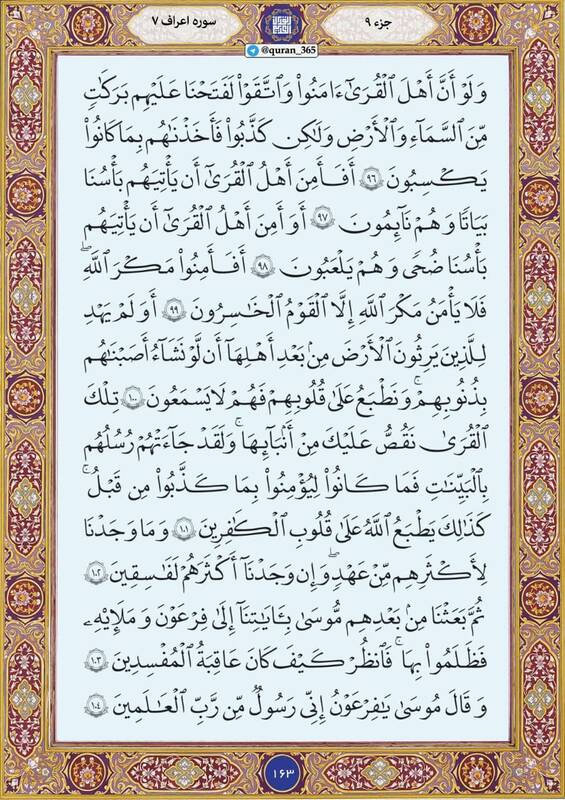 جزء ۹
سوره اعراف ۷
@quran_365
وَلَوْ أَنَّ أَهْلَ ٱلْقُرَىٰٓ ءَامَنُوا۟ وَٱتَّقَوْا۟ لَفَتَحْنَا عَلَيْهِم بَرَكَٰتٍ
مِّنَ ٱلسَّمَآءِ وَٱلْأَرْضِ وَلَٰكِن كَذَّبُوا۟ فَأَخَذْنَٰهُم بِمَا كَانُوا۟
يَكْسِبُونَ ۹۶ أَفَأَمِنَ أَهْلُ ٱلْقُرَىٰٓ أَن يَأْتِيَهُم بَأْسُنَا
بَيَٰتًا وَهُمْ نَآئِمُونَ ۹۷ أَوَأَمِنَ أَهْلُ ٱلْقُرَىٰٓ أَن يَأْتِيَهُم
بَأْسُنَا ضُحًى وَهُمْ يَلْعَبُونَ ۹۸ أَفَأَمِنُوا۟ مَكْرَ ٱللَّهِ ۚ
فَلَا يَأْمَنُ مَكْرَ ٱللَّهِ إِلَّا ٱلْقَوْمُ ٱلْخَٰسِرُونَ ۹۹ أَوَلَمْ يَهْدِ
لِلَّذِينَ يَرِثُونَ ٱلْأَرْضَ مِنۢ بَعْدِ أَهْلِهَآ أَن لَّوْ نَشَآءُ أَصَبْنَٰهُم
بِذُنُوبِهِمْ ۚ وَنَطْبَعُ عَلَىٰ قُلُوبِهِمْ فَهُمْ لَا يَسْمَعُونَ ۱۰۰ تِلْكَ
ٱلْقُرَىٰ نَقُصُّ عَلَيْكَ مِنْ أَنۢبَآئِهَا ۚ وَلَقَدْ جَآءَتْهُمْ رُسُلُهُم
بِٱلْبَيِّنَٰتِ فَمَا كَانُوا۟ لِيُؤْمِنُوا۟ بِمَا كَذَّبُوا۟ مِن قَبْلُ ۚ
كَذَٰلِكَ يَطْبَعُ ٱللَّهُ عَلَىٰ قُلُوبِ ٱلْكَٰفِرِينَ ۱۰۱ وَمَا وَجَدْنَا
لِأَكْثَرِهِم مِّنْ عَهْدٍ ۖ وَإِن وَجَدْنَآ أَكْثَرَهُمْ لَفَٰسِقِينَ ۱۰۲
ثُمَّ بَعَثْنَا مِنۢ بَعْدِهِم مُّوسَىٰ بِـَٔايَٰتِنَآ إِلَىٰ فِرْعَوْنَ وَمَلَإِي۟هِۦ
فَظَلَمُوا۟ بِهَا ۖ فَٱنظُرْ كَيْفَ كَانَ عَٰقِبَةُ ٱلْمُفْسِدِينَ ۱۰۳
وَقَالَ مُوسَىٰ يَٰفِرْعَوْنُ إِنِّى رَسُولٌ مِّن رَّبِّ ٱلْعَٰلَمِينَ ۱۰۴
۱۶۳